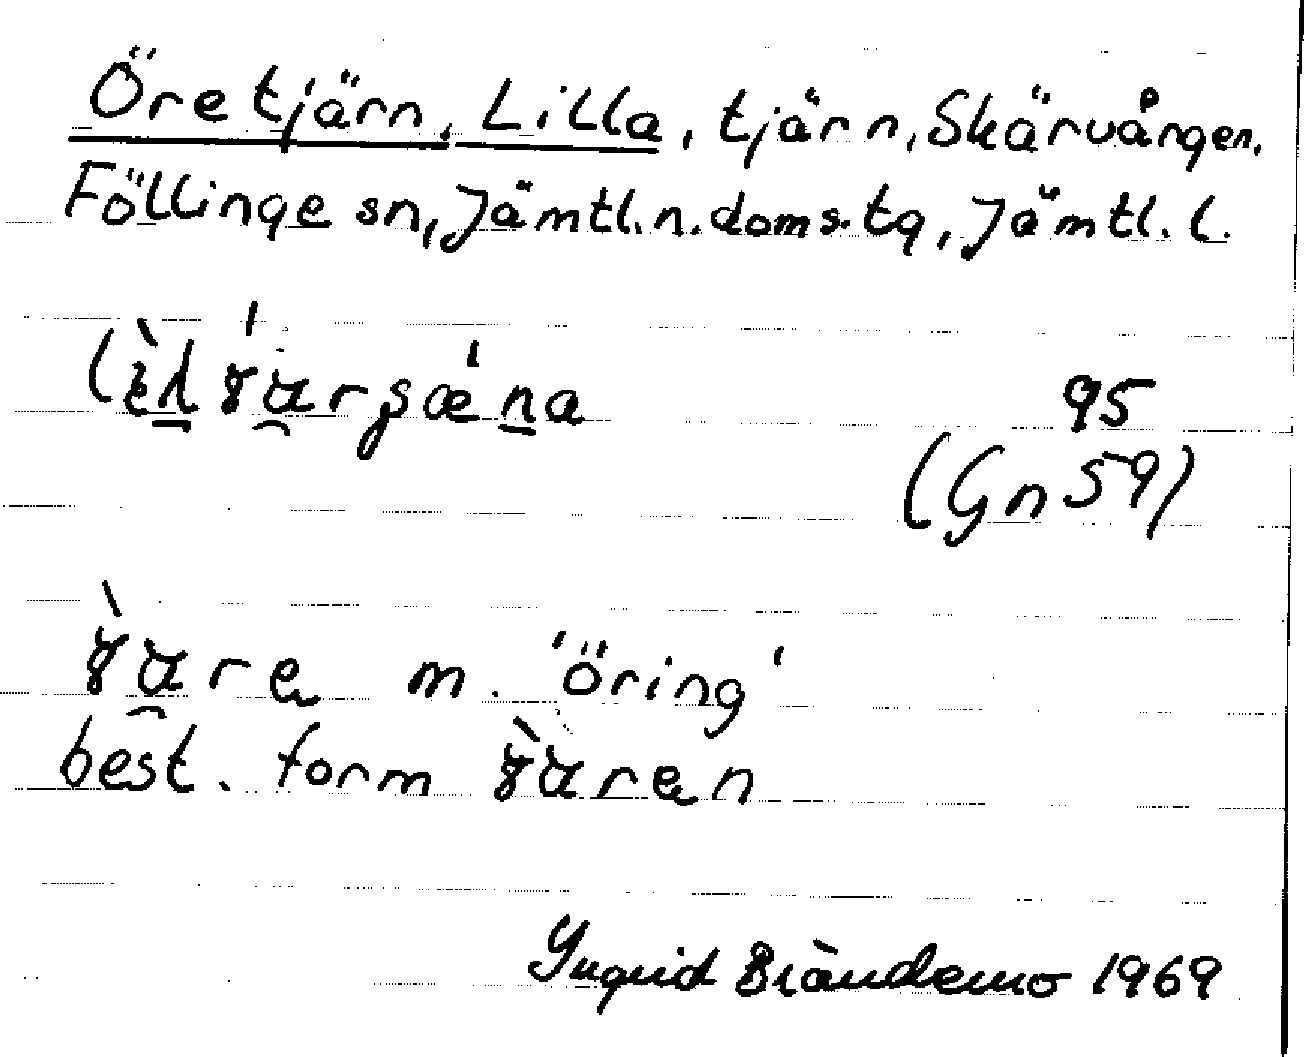 Öretjärn, Lilla, tjärn, Skärvången,
Föllinge sn, Jämtl. n. doms. tg, Jämtl. l.
95
(Gn 59)
m. 'öring'
best. form
Ingrid Brändemo 1969